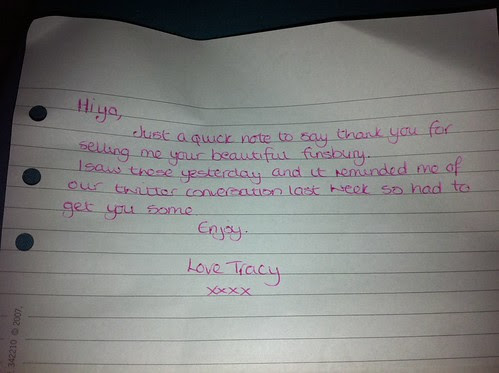 Hiya,
Just a quick note to say thank you for
selling me your beautiful finsbury.
I saw these yesterday and it reminded me of
our twitter conversation last week so had to
get you some
Enjoy.
Love Tracy
xxxx
342210 © 2007.